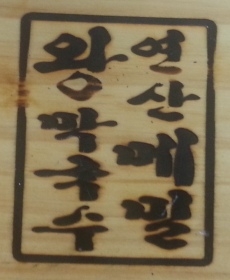 연산메밀
왕막국수